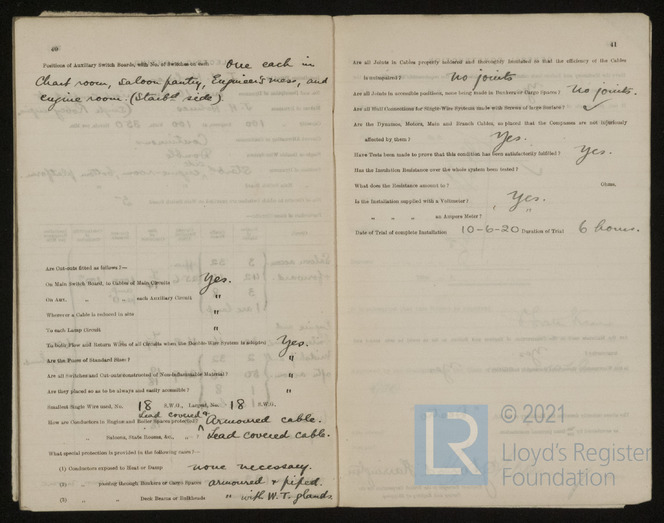 40
Positions of Auxiliary Switch Boards, with No. of Switches on each One each in
Chart room, Saloon pantry, Engineer's mess, and
engine room. (Starbd side)
Are Cut-outs fitted as follows?—
On Main Switch Board, in Cables of Main Circuits Yes.
On Aux. " " each Auxiliary Circuit "
Wherever a Cable is reduced in size "
To each Lamp Circuit "
To both Flow and Return Wires of all Circuits when the Double Wire System is adopted Yes.
Are the Fuses of Standard Sizes? "
Are all Switches and Cut-outs constructed of Non-inflammable Material? "
Are they placed so as to be always and easily accessible? "
Smallest Single Wire used, No. 18 S.W.G., Largest, No. 18 S.W.G.
Lead covered &
How are Conductors in Engine and Boiler Spaces protected? Armoured cable.
" Saloons, State Rooms, &c., " " Lead covered cable.
What special protection is provided in the following cases?—
(1) Conductors exposed to Heat or Damp none necessary.
(2) " passing through Bunkers or Cargo Spaces armoured & piped.
(3) " " Deck Beams or Bulkheads " with W.T. glands.
41
Are all Joints in Cables properly soldered and thoroughly insulated so that the efficiency of the Cables
is unimpaired? No joints
Are all Joints in accessible positions, none being made in Bunkers or Cargo Spaces? No joints.
Are all Hull Connections for Single Wire Systems made with Screws of large Surface? ✓
Are the Dynamos, Motors, Main and Branch Cables, so placed that the Compasses are not injuriously
affected by them? Yes.
Have Tests been made to prove that this condition has been satisfactorily fulfilled? Yes.
Has the Insulation Resistance over the whole system been tested?
What does the Resistance amount to? Ohms.
Is the Installation supplied with a Voltmeter? Yes.
" " " an Ampere Meter? "
Date of Trial of complete Installation 10-6-20 Duration of Trial 6 hours.
© 2021
LR
Lloyd's Register
Foundation